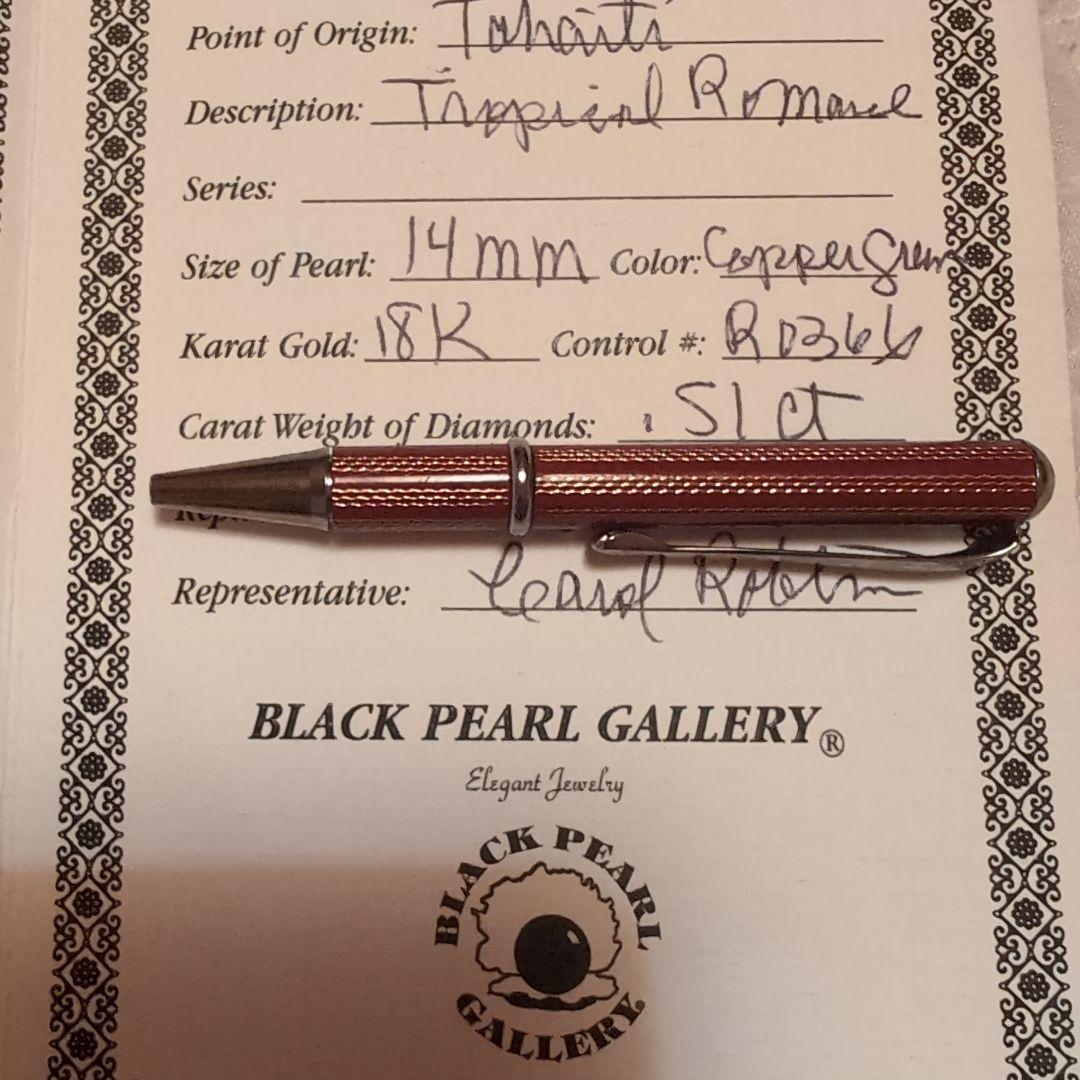 Point of Origin: Tahaiti
Description: Tropical Romance
Series:
Size of Pearl: 14mm Color: Copper Green
Karat Gold: 18K Control #: R0366
Carat Weight of Diamonds: .51 ct
Representative: Carol
BLACK PEARL GALLERY®
Elegant Jewelry
BLACK PEARL
GALLERY